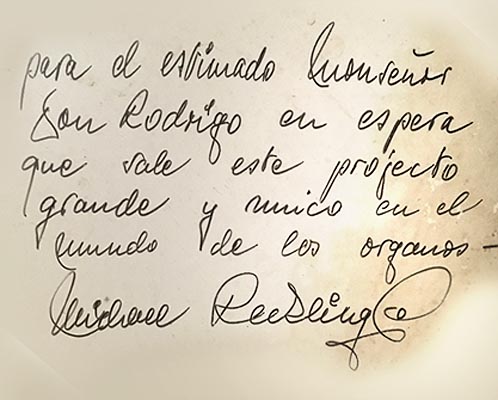 para el estimado Monseñor
Don Rodrigo en espera
que sale este projecto
grande y unico en el
mundo de los organos -
Michael Reckling